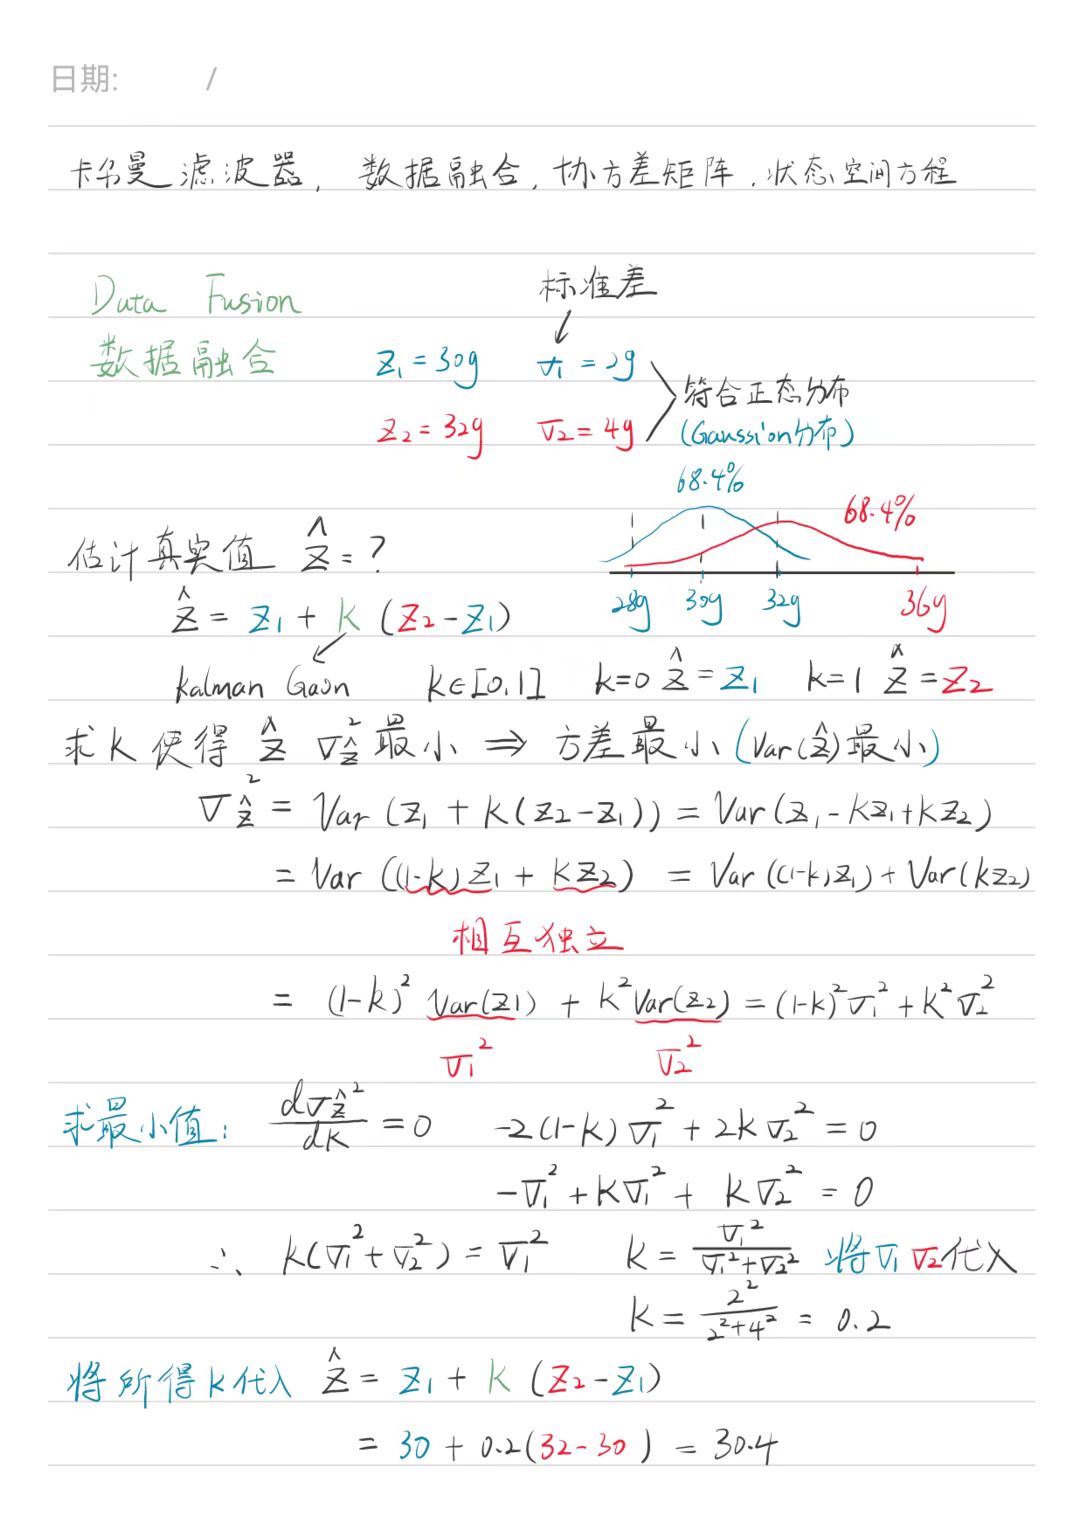 日期: /
卡尔曼滤波器, 数据融合, 协方差矩阵, 状态空间方程
Data Fusion 标准差
数据融合 Z₁ = 30g σ₁ = 2g
符合正态分布
Z₂ = 32g σ₂ = 4g (Gaussion分布)
68.4%
68.4%
估计真实值 Ẑ = ?
28g 30g 32g 36g
Ẑ = Z₁ + k (Z₂ - Z₁)
kalman Gaon k∈[0,1] k=0 Ẑ = Z₁ k=1 Ẑ = Z₂
求k使得 Ẑ σẑ² 最小 ⇒ 方差最小 (Var(Ẑ)最小)
σẑ² = Var (Z₁ + k(Z₂-Z₁)) = Var(Z₁ - kZ₁ + kZ₂)
= Var ((1-k)Z₁ + kZ₂) = Var((1-k)Z₁) + Var(kZ₂)
相互独立
= (1-k)² Var(Z1) + k² Var(Z₂) = (1-k)²σ₁² + k²σ₂²
σ₁² σ₂²
求最小值: dσẑ²/dk = 0 -2(1-k)σ₁² + 2kσ₂² = 0
-σ₁² + kσ₁² + kσ₂² = 0
∴ k(σ₁² + σ₂²) = σ₁² k = σ₁²/(σ₁²+σ₂²) 将σ₁ σ₂代入
k = 2²/(2²+4²) = 0.2
将所得k代入 Ẑ = Z₁ + k (Z₂ - Z₁)
= 30 + 0.2(32-30) = 30.4